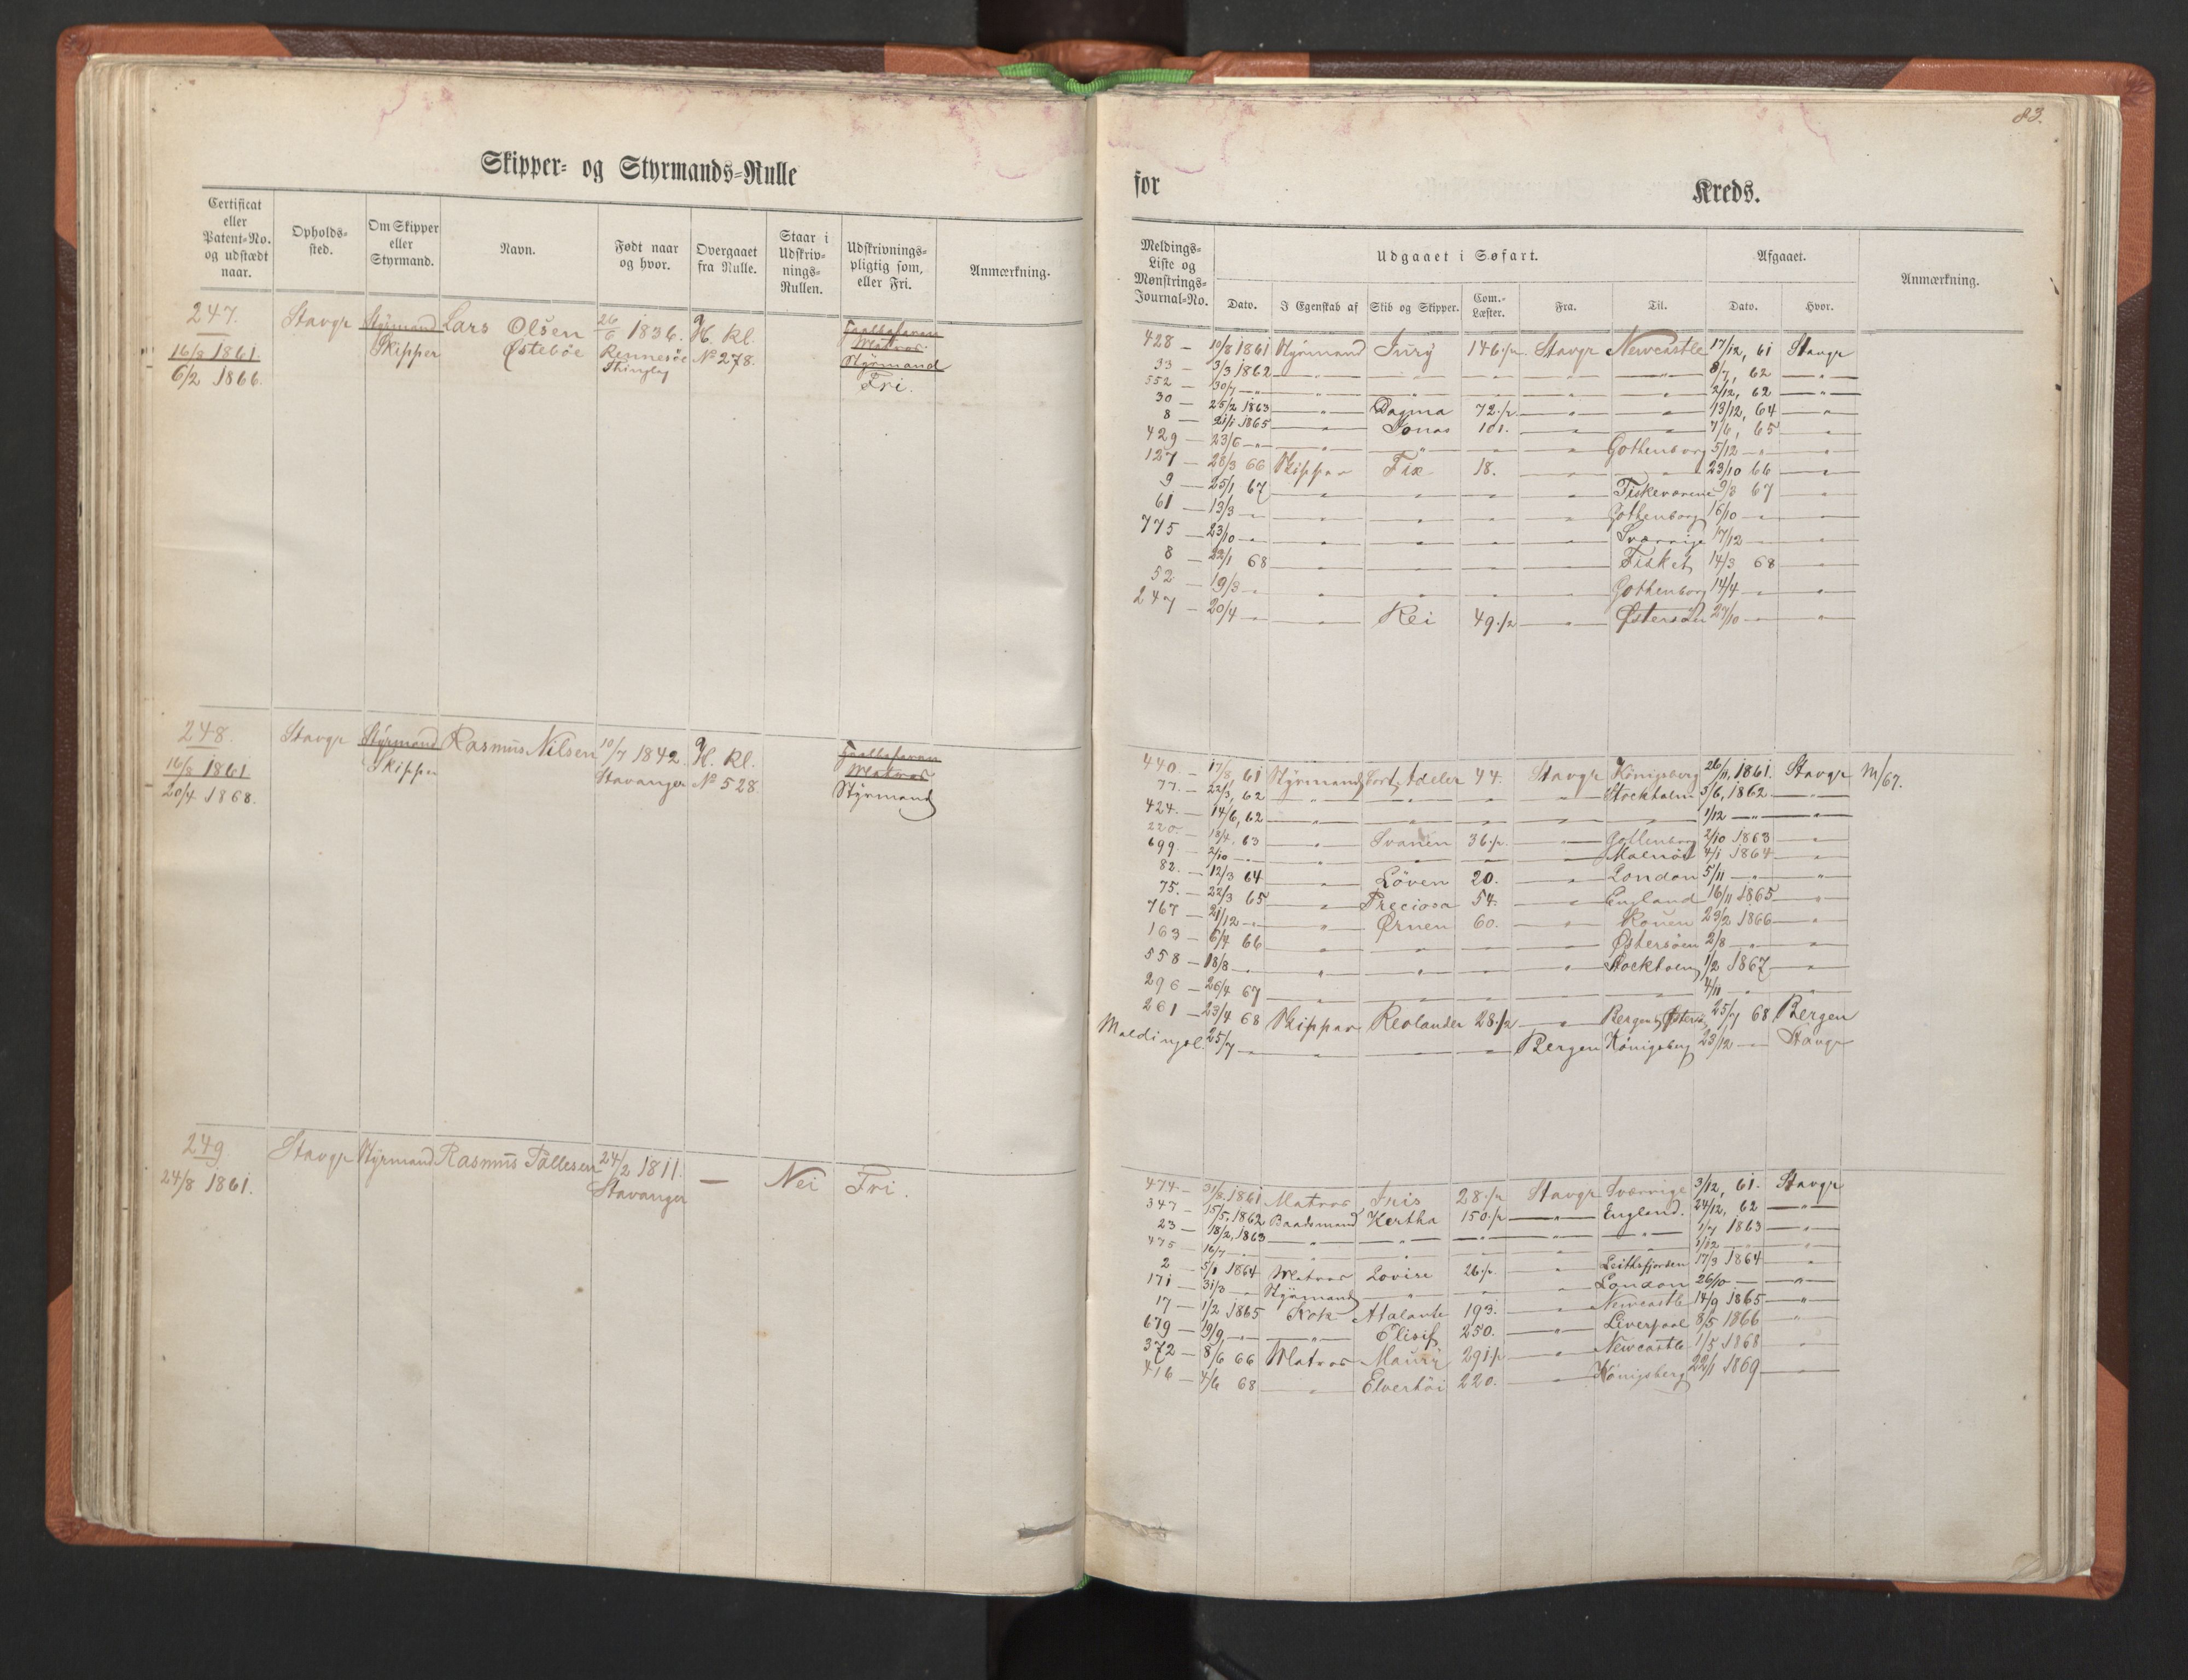 Skipper- og Styrmands-Rulle
Certificat eller Patent-No. og udstædt naar.
Opholds-sted.
Om Skipper eller Styrmand.
Navn.
Født naar og hvor.
Overgaaet fra Rulle.
Staar i Udskriv-nings-Rullen.
Udskrivnings-pligtig som, eller Fri.
Anmærkning.
247. Stavgr Styrmand Lars Olsen 26/6 1836. H. Kl.
16/8 1861. Skipper Østebøe Rennesöe No 278. Matros
6/2 1866. Thinglag Styrmand
Fri.
248. Stavgr Styrmand Rasmus Nilsen 10/7 1842. H. Kl.
16/8 1861 Skipper Stavanger No 528. Matros
20/4 1868. Styrmand
249 Stavgr Styrmand Rasmus Tallesen 24/2 1811. — Nei Fri.
24/8 1861. Stavanger
83.
for Kreds.
Meldings-Liste og Mønstrings-Journal-No.
Udgaaet i Søfart.
Afgaaet.
Anmærkning.
Dato. I Egenskab af Skib og Skipper. Com.-Læster. Fra. Til. Dato. Hvor.
428 — 19/8 1861 Styrmand Jury 146.½ Stavgr Newcastle 17/12, 61 Stavgr
33 — 3/3 1862 — " — — — — — " — 8/7, 62 — " —
552 — 30/7 — " — " " " " " " 2/12, 62 — " —
30 — 25/2 1863 — " — Dagma 72.½ — " — — " — 13/12, 64 — " —
8 — 21/1 1865 — " — Jonas 101. — " — — " — 7/6, 65 "
429 — 23/6 — " — " " " " Gothenborg 5/12 — " — "
127 — 28/3 66 Skipper Fix 18. " " 23/10 66 — " —
9 — 25/1 67 " " " " Fiskevarene 9/3 67 — " —
61 — 13/3 — " " " " " Gothenborg 16/10 — " — "
775 — 23/10 — " " " " " Sverrige 17/12 — " — "
8 — 22/1 68 " " " " Fisket 14/3 68 "
52 — 19/3 — " " " " " Gothenborg 14/4 — " — "
247 — 20/4 — " — Rei 49.½ — " — Østersöen 27/10 — " — "
440. — 17/8, 61 Styrmand Tordk. Adeler 44. Stavgr Königsberg 26/11, 1861. Stavgr M/67.
77. — 22/3, 62 — " — — — " Stockholm 5/6, 1862 — " —
424. — 14/6, 62 — " — " " " " 1/12 — " — "
220. — 18/4, 63 — " — Svanen 36.½ — " — Gottenborg 2/10 1863 "
699 — 2/10 — " — " " " " Malmöe 4/1 1864 "
82. — 12/3 64 " Löven 20. " London 5/11 — " — "
75. — 22/3 65 " Preciosa 54. " England 16/11 1865 "
767 — 21/12 — " " Ørnen 60. " Rouen 23/2 1866 "
163 — 6/4 66 " " " " Østersöen 2/8 — " — "
558 — 18/8 — " " " " " Stockholm 1/2 1867 "
296 — 26/4 67 " " " " " 4/11 " "
261 — 23/4 68 Skipper Reolander 28.½ " Bergen & Østers. 25/7 68 Bergen
Meldingsl. 25/7 — " " " Bergen Königsberg 23/12 — Stavgr
474 — 31/8, 1861 Matros Iris 28.½ Stavgr Sverrige 3/12, 61. Stavgr
347 — 15/5, 1862 Baadsmand Hertha 150.½ — " — England. 24/12, 62 — " —
23 — 18/2, 1863 — " — " " " " 1/7 1863 "
475 — 16/7 — " " " " " " 1/12 — "
2 — 5/1 1864 Matros Lovise 26.½ " Leithsfjorden 17/3 1864 "
171 — 31/3 — " Styrmand " " " London 26/10 — "
17 — 1/2 1865 Kok Atalante 193. " Newcastle 14/9 1865 "
679 — 19/9 — " " Elisif 250. " Liverpool 8/5 1866 "
372 — 8/6 66 Matros Maury 291.½ " Newcastle 1/5 1868 "
416 — 4/6 68 " Elverhöi 220. " Königsberg 22/1 1869 "